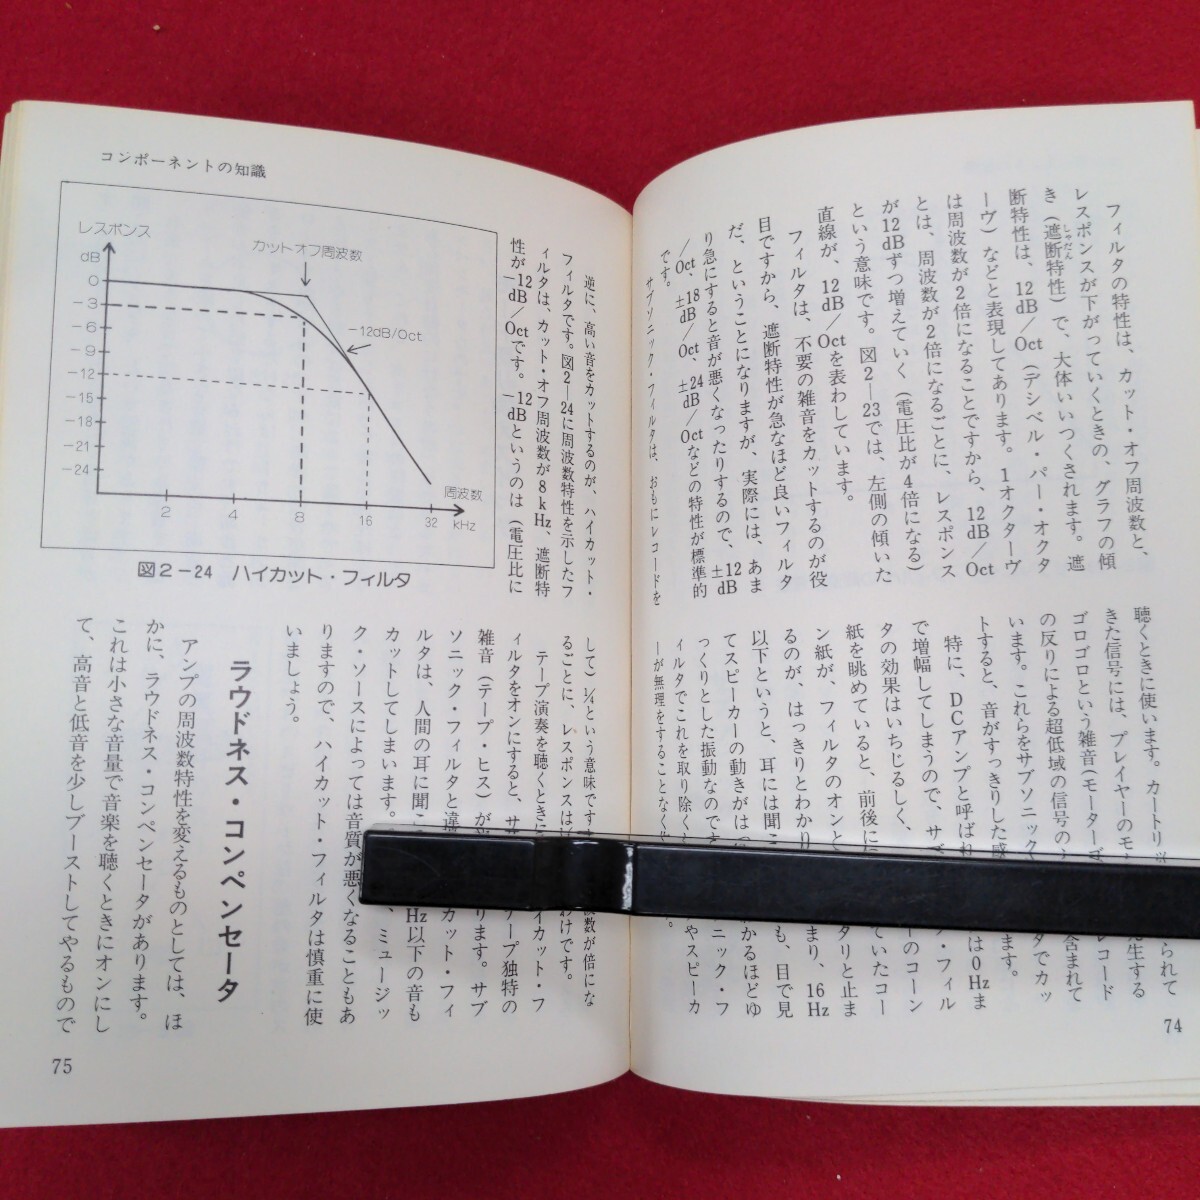 フィルタの特性は、カット・オフ周波数と、
レスポンスが下がっていくときの、グラフの傾
き（遮断特性）で、大体いいつくされます。遮
しゃだん
断特性は、12dB／Oct（デシベル・パー・オクタ
ーヴ）などと表現してあります。1オクターヴ
は周波数が2倍になることですから、12dB／Oct
とは、周波数が2倍になるごとに、レスポンス
が12dBずつ増えていく（電圧比が4倍になる）
という意味です。図2―23では、左側の傾いた
直線が、12dB／Octを表わしています。
フィルタは、不要の雑音をカットするのが役
目ですから、遮断特性が急なほど良いフィルタ
だ、ということになりますが、実際には、あま
り急にすると音が悪くなったりするので、±12dB
／Oct、±18dB／Oct、±24dB／Octなどの特性が標準的
です。
サブソニック・フィルタは、おもにレコードを
聴くときに使います。カートリッ
られて
きた信号には、プレイヤーのモー
生する
ゴロゴロという雑音（モーターゴ
レコード
の反りによる超低域の信号の
含まれて
います。これらをサブソニック
タでカッ
トすると、音がすっきりした感
ます。
特に、DCアンプと呼ばれ
は0Hzま
で増幅してしまうので、サブ
ク・フィル
タの効果はいちじるしく、
ーのコーン
紙を眺めていると、前後に
ていたコー
ン紙が、フィルタのオンと
タリと止ま
るのが、はっきりとわかり
まり、16Hz
以下というと、耳には聞こ
も、目で見
てスピーカーの動きがは
かるほどゆ
っくりとした振動なのです
ニック・フ
ィルタでこれを取り除くと
やスピーカ
ーが無理をすることなく
。
74
コンポーネントの知識
レスポンス
dB
0
－3
－6
－9
－12
－15
－18
－21
－24
カットオフ周波数
－12dB/Oct
周波数
2 4 8 16 32 kHz
図2－24 ハイカット・フィルタ
逆に、高い音をカットするのが、ハイカット・
フィルタです。図2―24に周波数特性を示したフ
ィルタは、カット・オフ周波数が8kHz、遮断特
性が－12dB／Octです。－12dBというのは（電圧比に
して）¼という意味です
波数が倍にな
るごとに、レスポンスは
わけです。
テープ演奏を聴くときに
イカット・フ
ィルタをオンにすると、サ
テープ独特の
雑音（テープ・ヒス）が
ります。サブ
ソニック・フィルタと違
カット・フィ
ルタは、人間の耳に聞こ
Hz以下の音も
カットしてしまいます。
、ミュージッ
ク・ソースによっては音質が悪くなることもあ
りますので、ハイカット・フィルタは慎重に使
いましょう。
ラウドネス・コンペンセータ
アンプの周波数特性を変えるものとしては、ほ
かに、ラウドネス・コンペンセータがあります。
これは小さな音量で音楽を聴くときにオンにし
て、高音と低音を少しブーストしてやるもので
75